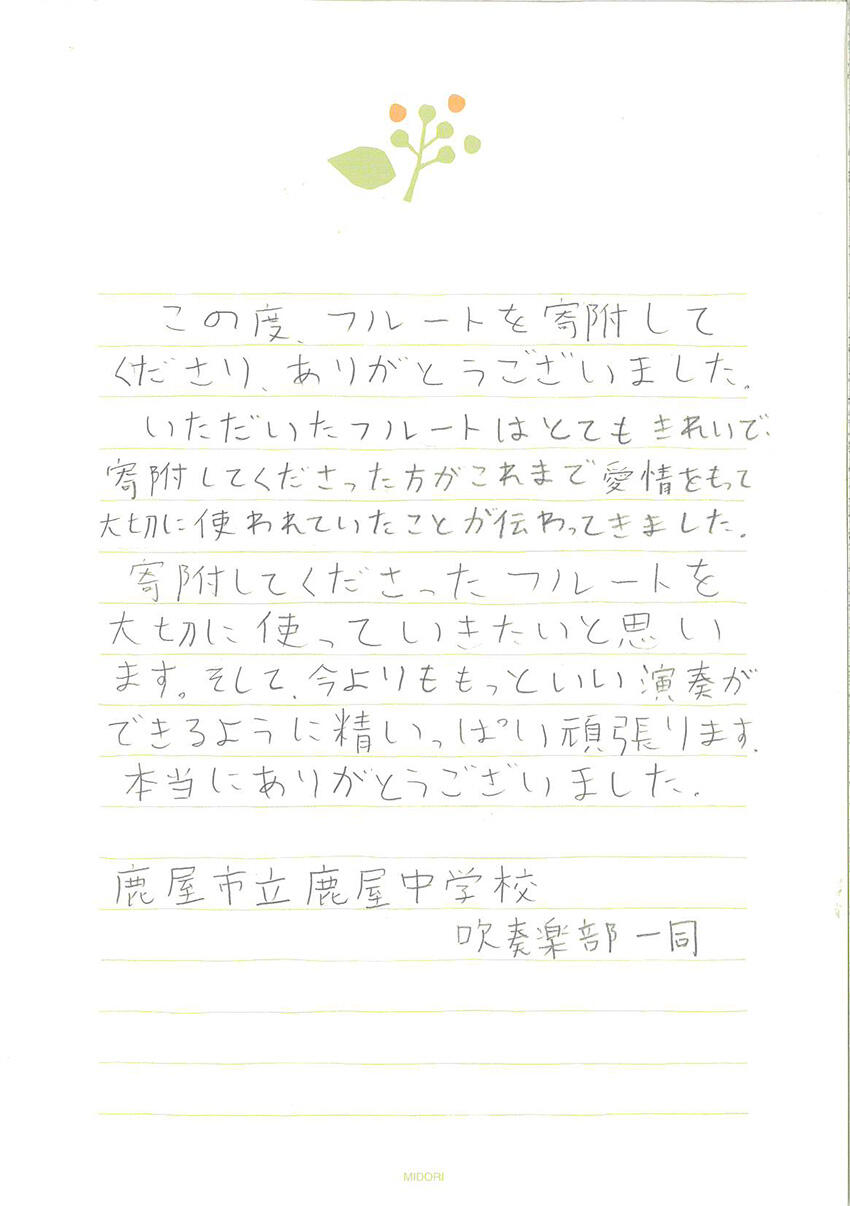 この度、フルートを寄附して
くださり、ありがとうございました。
いただいたフルートはとてもきれいで、
寄附してくださった方がこれまで愛情をもって
大切に使われていたことが伝わってきました。
寄附してくださったフルートを
大切に使っていきたいと思い
ます。そして、今よりももっといい演奏が
できるように精いっぱい頑張ります。
本当にありがとうございました。
鹿屋市立鹿屋中学校
吹奏楽部一同
MIDORI